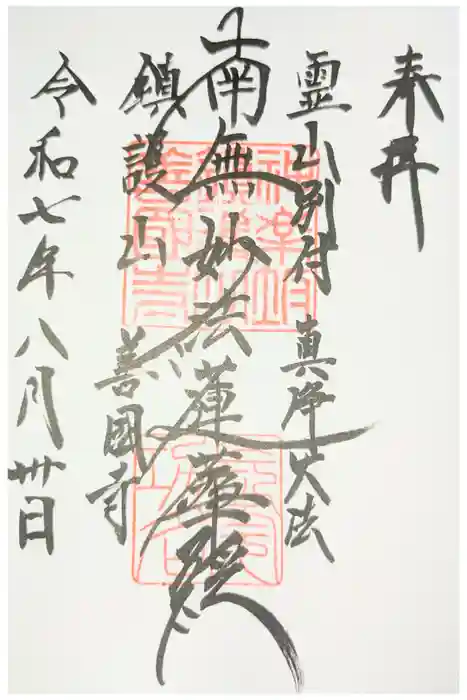 奉拝
霊山別付 真浄大法
南無妙法蓮華経
鎮護山 善國寺
令和七年八月卅日